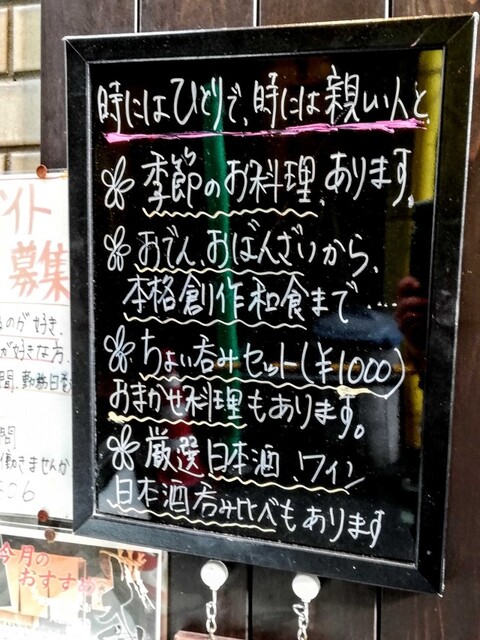 時にはひとりで、時には親しい人と
季節のお料理、あります。
おでん、おばんざいから、
本格創作和食まで……
ちょい呑みセット(¥1000)
おまかせ料理もあります。
厳選日本酒、ワイン
日本酒呑み比べもあります
イト
募集
るのが好き、
が好きな方、
間、勤務日
間
働きませんか
今月の
おすすめ